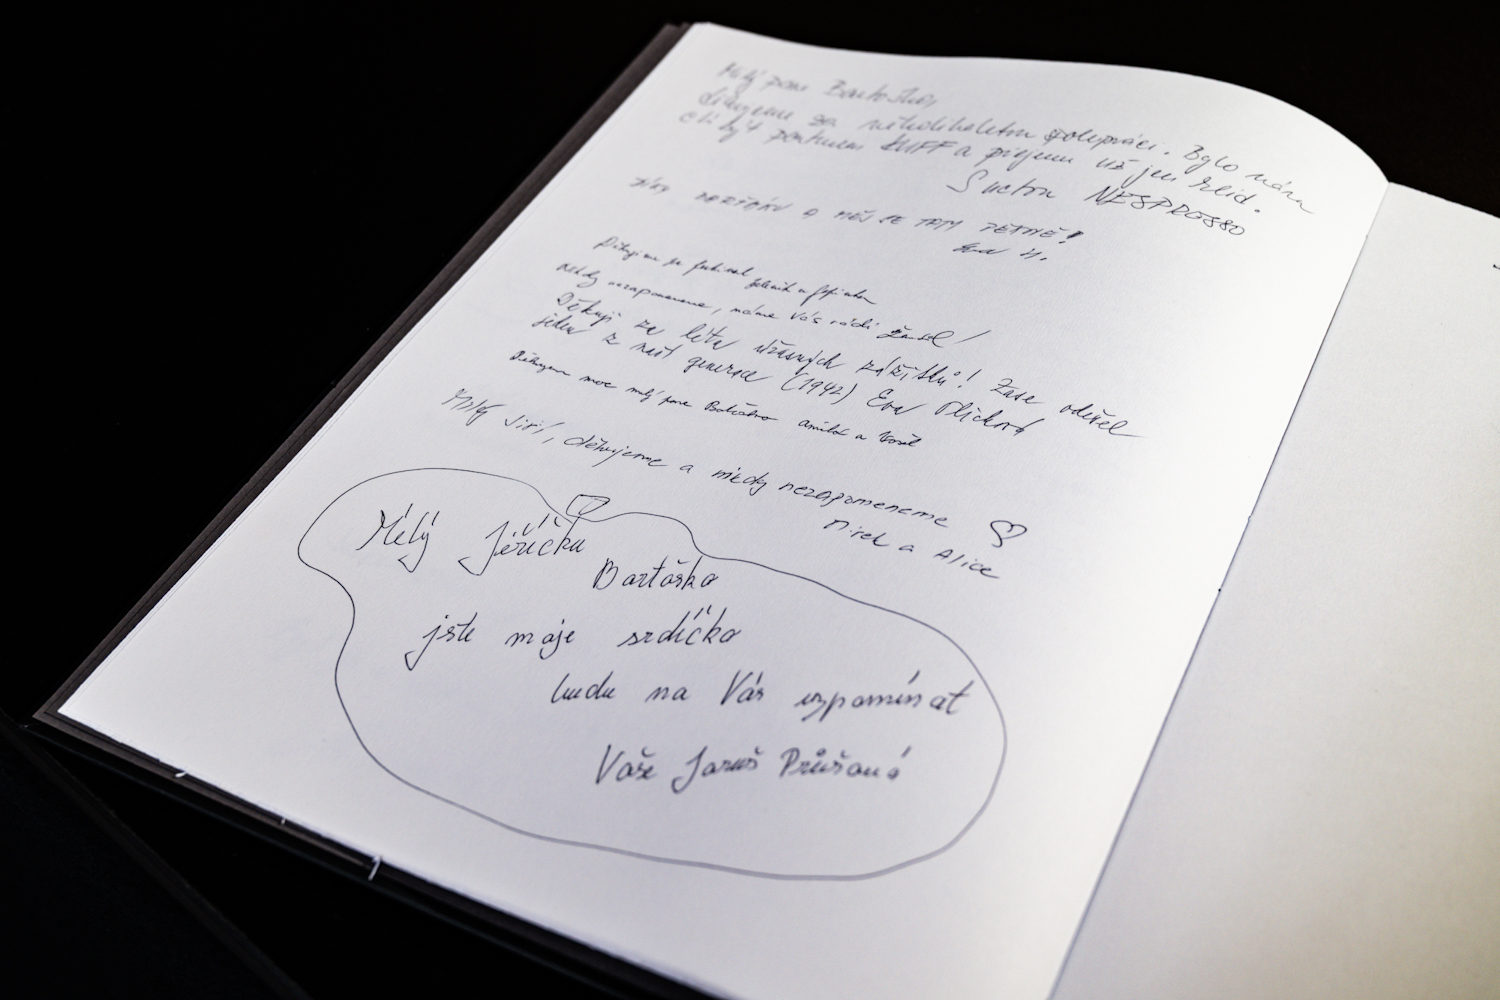 Milý pane Bartoško,
děkujeme za několikaletou spolupráci. Bylo nám
ctí být partnerem KVIFF a přejeme už jen klid.
NESPRESSO
A MĚJ SE TAM PĚKNĚ!
Děkujeme za festival
Nikdy nezapomeneme, máme Vás rádi
Děkuji za léta úžasných zážitků! Zase odešel
jeden z naší generace (1942) Eva
Děkujeme moc milý pane Bartoško a
Milý Jiří, děkujeme a nikdy nezapomeneme
Mirek a Alice
Milý Jiříčku
Bartoško
jste moje srdíčko
budu na Vás vzpomínat
Vaše Jarus Průšová